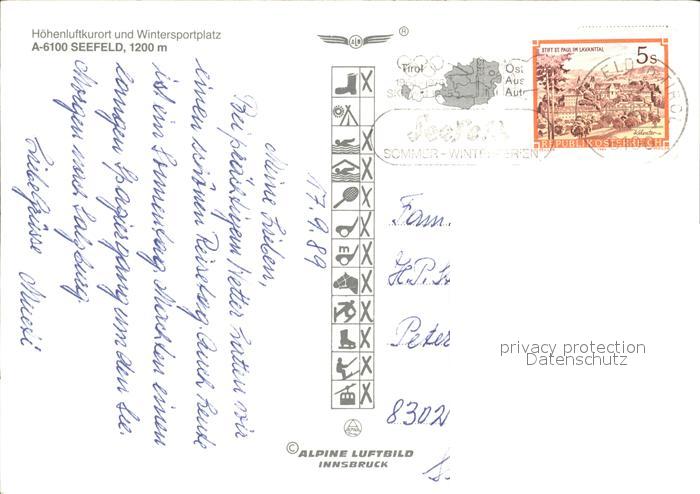 Höhenluftkurort und Wintersportplatz
A-6100 SEEFELD, 1200 m
17.9.89
Meine Lieben,
Bei prächtigem Wetter hatten wir
einen schönen Reisetag. Auch heute
ist ein Sonnentag. Machten einen
langen Spaziergang um den See.
Morgen nach Salzburg.
Liebe Grüsse
ALD
®
m
© ALPINE LUFTBILD
INNSBRUCK
Tirol
Öst
Aus
Auto
Seefeld
SOMMER - WINTERFERIEN
STIFT ST. PAUL IM LAVANTTAL
5s
Kärnten
REPUBLIK ÖSTERREICH
SEEFELD TIROL
Fam.
Peter
8302
privacy protection
Datenschutz